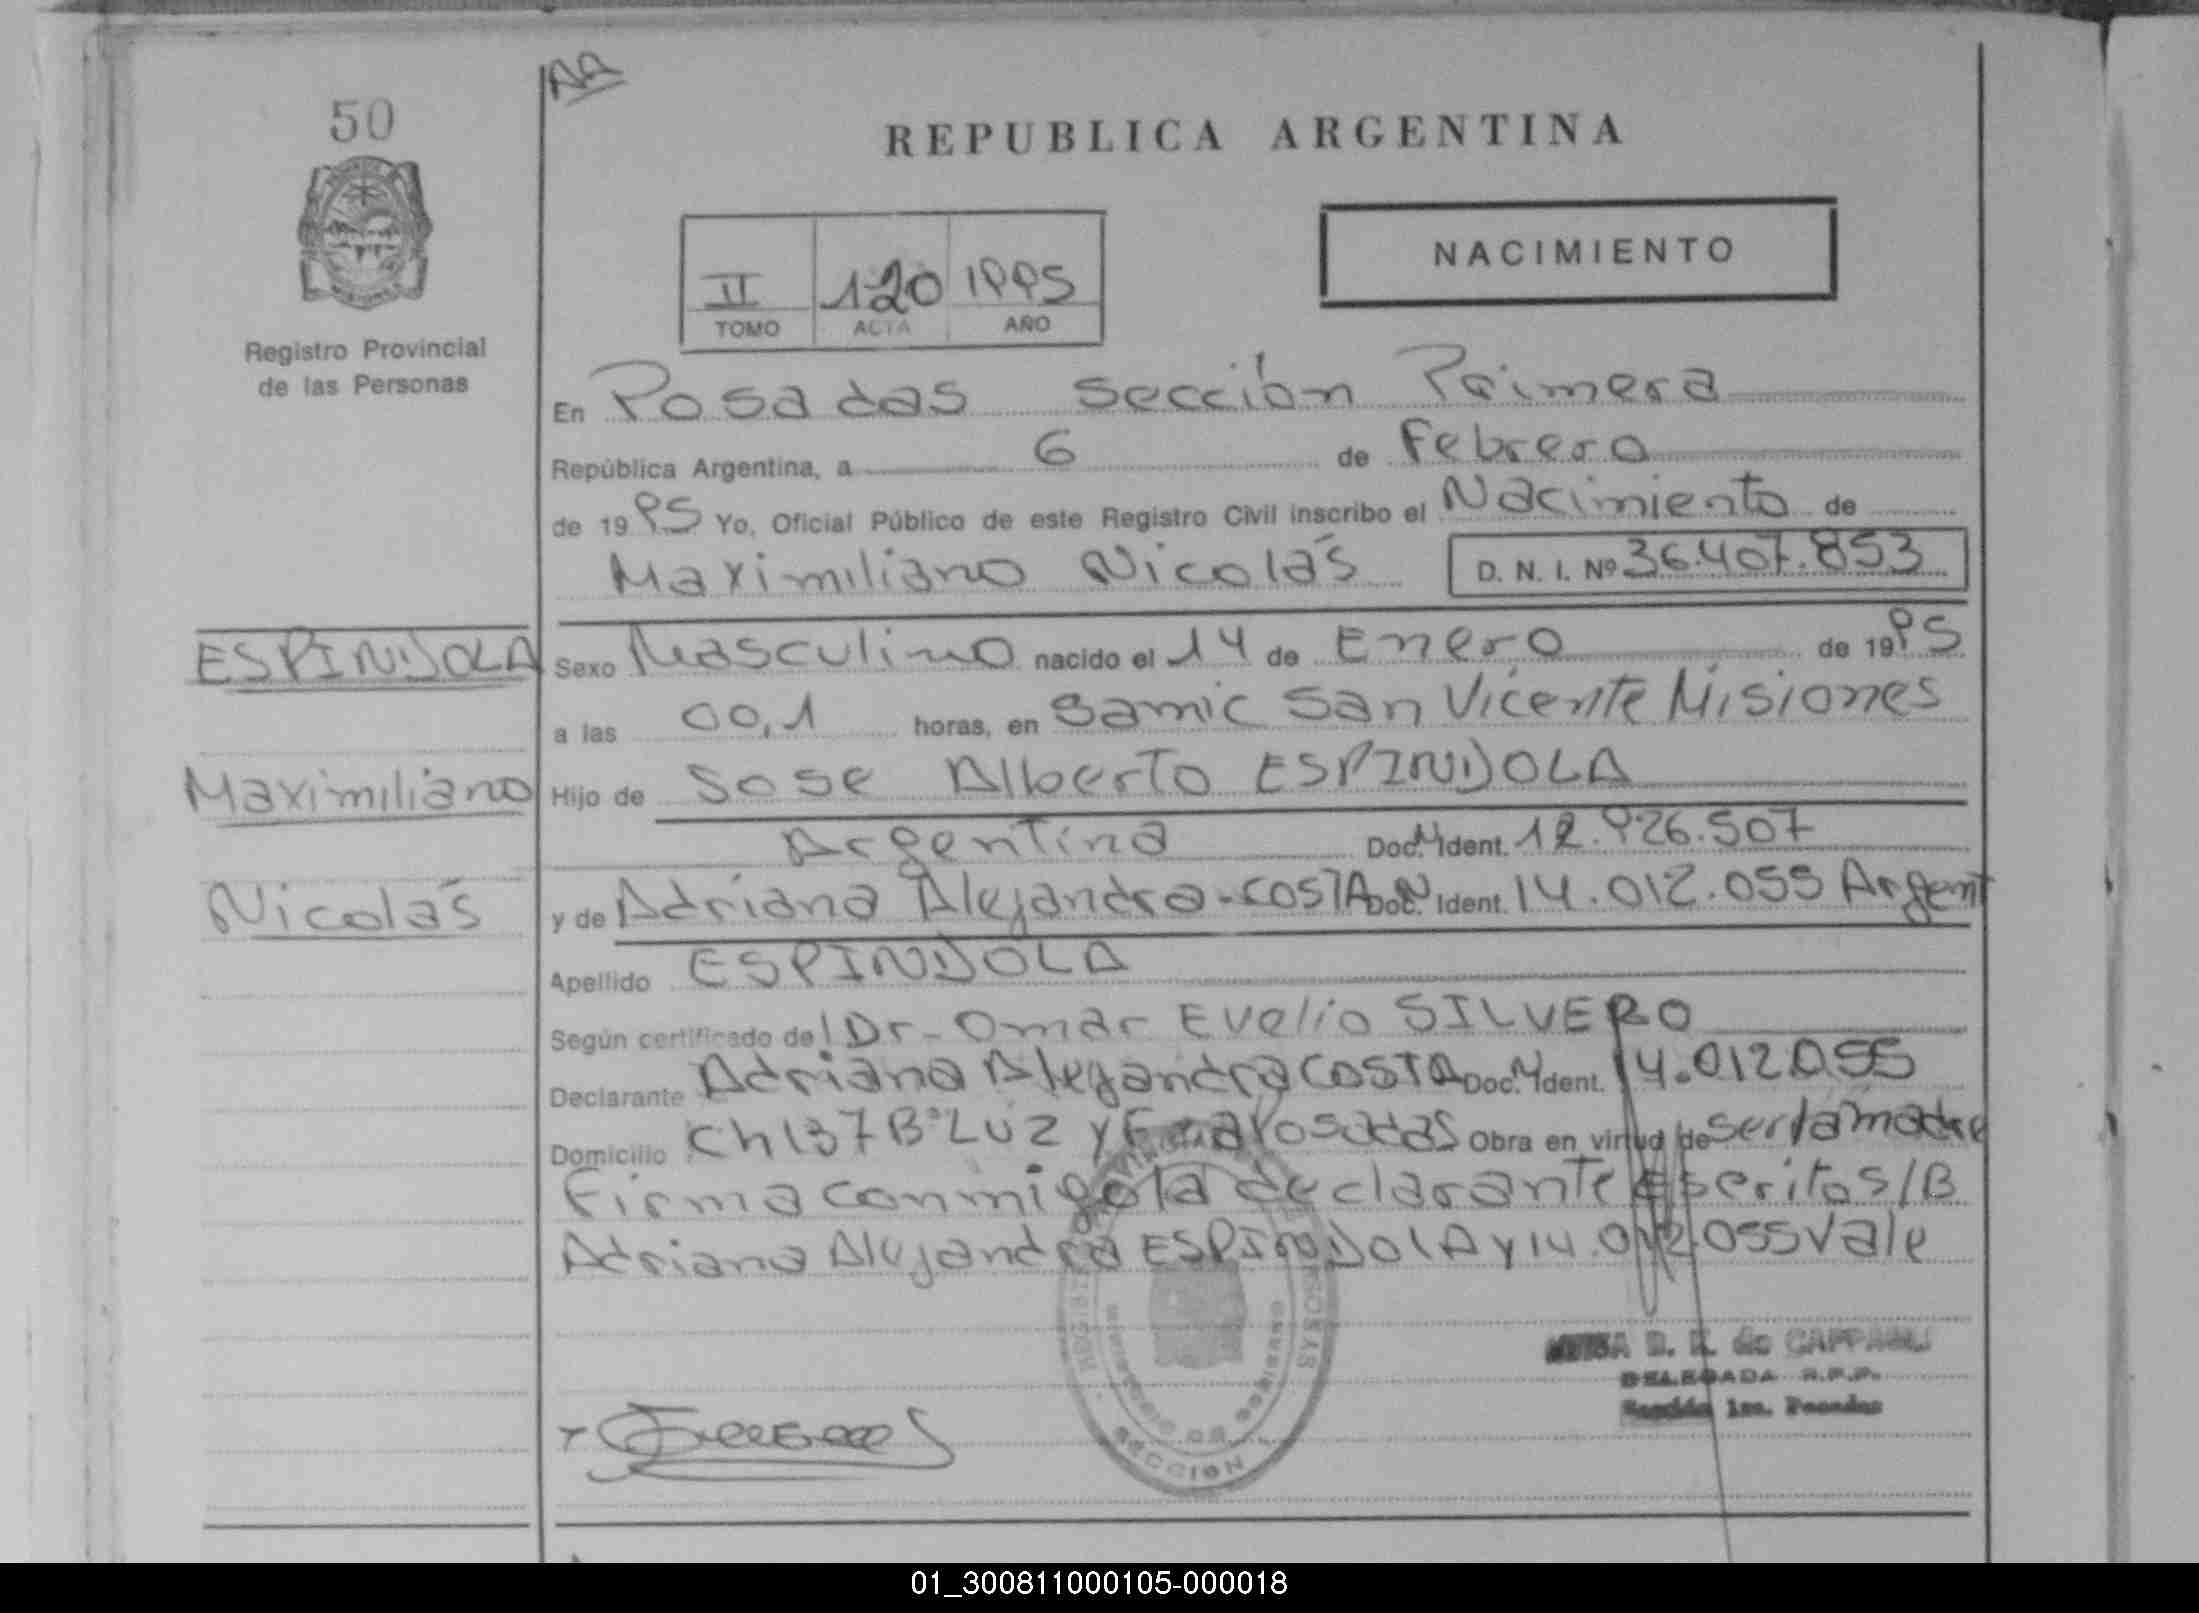 50
AA
REPUBLICA ARGENTINA
II 120 1995
TOMO ACTA AÑO
NACIMIENTO
Registro Provincial
de las Personas
En Posadas sección Primera
República Argentina, a 6 de Febrero
de 1995 Yo, Oficial Público de este Registro Civil inscribo el Nacimiento de
Maximiliano Nicolás D. N. I. Nº 36.407.853
ESPINDOLA
Sexo Masculino nacido el 14 de Enero de 1995
a las 00,1 horas, en Samic San Vicente Misiones
Maximiliano
Hijo de Jose Alberto ESPINDOLA
Argentina Doc. N Ident. 12.926.507
Nicolás
y de Adriana Alejandra COSTA Doc. N Ident. 14.012.055 Argent
Apellido ESPINDOLA
Según certificado del Dr. Omar Evelio SILVERO
Declarante Adriana Alejandra COSTA Doc. N Ident. 14.012.055
Domicilio Ch 137 Bº Luz y Posadas Obra en virtud de ser la madre
Firma conmigo la declarante Escritos/B
Adriana Alejandra ESPINDOLA y 14.012.055 Vale
de CAPPAGLI
DELEGADA R.P.P.
Sección 1ra. Posadas
SECCION
01_300811000105-000018